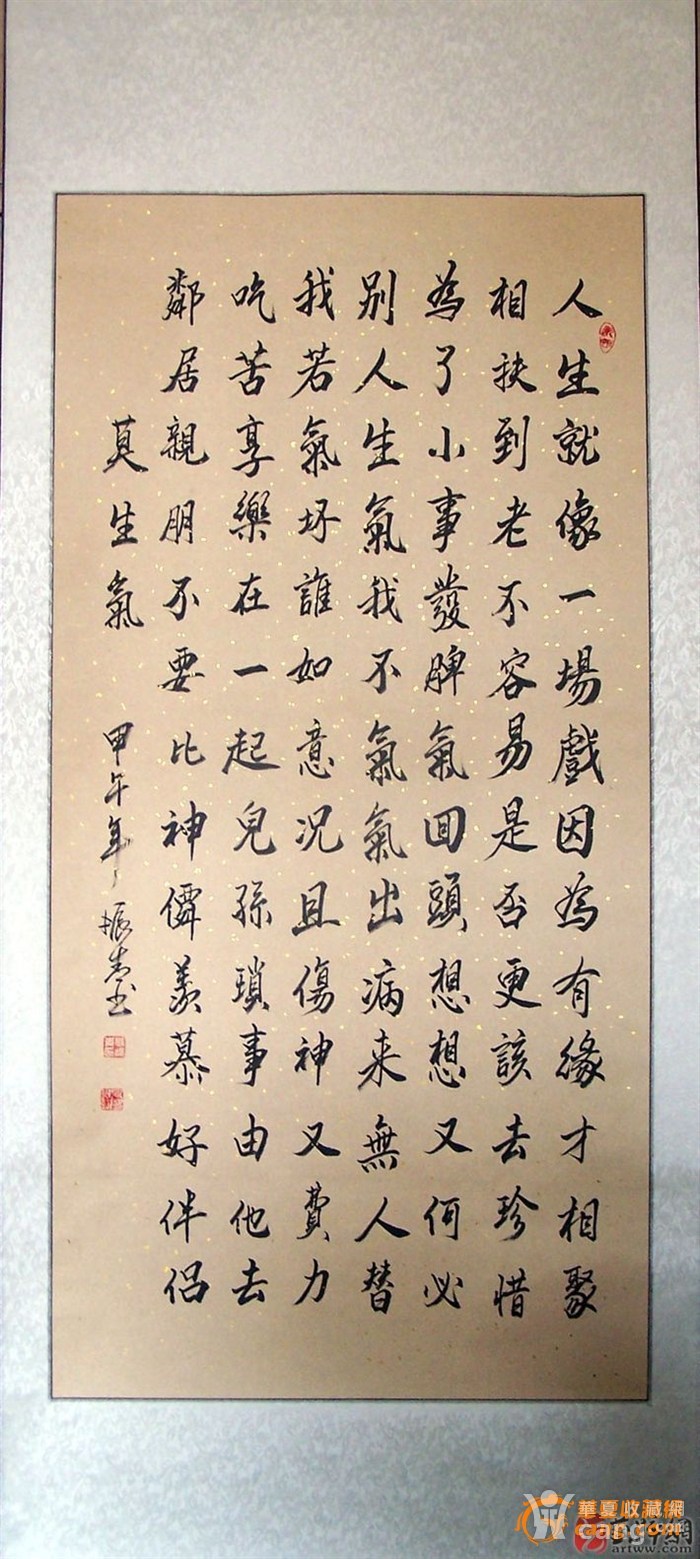 人生就像一場戲因為有緣才相聚
相扶到老不容易是否更該去珍惜
為了小事發脾氣回頭想想又何必
别人生氣我不氣氣出病来無人替
我若氣坏誰如意况且傷神又費力
吃苦享樂在一起兒孫瑣事由他去
鄰居親朋不要比神僊羨慕好伴侣
莫生氣
甲午年振書
華夏收藏網
cang.com
artww.com